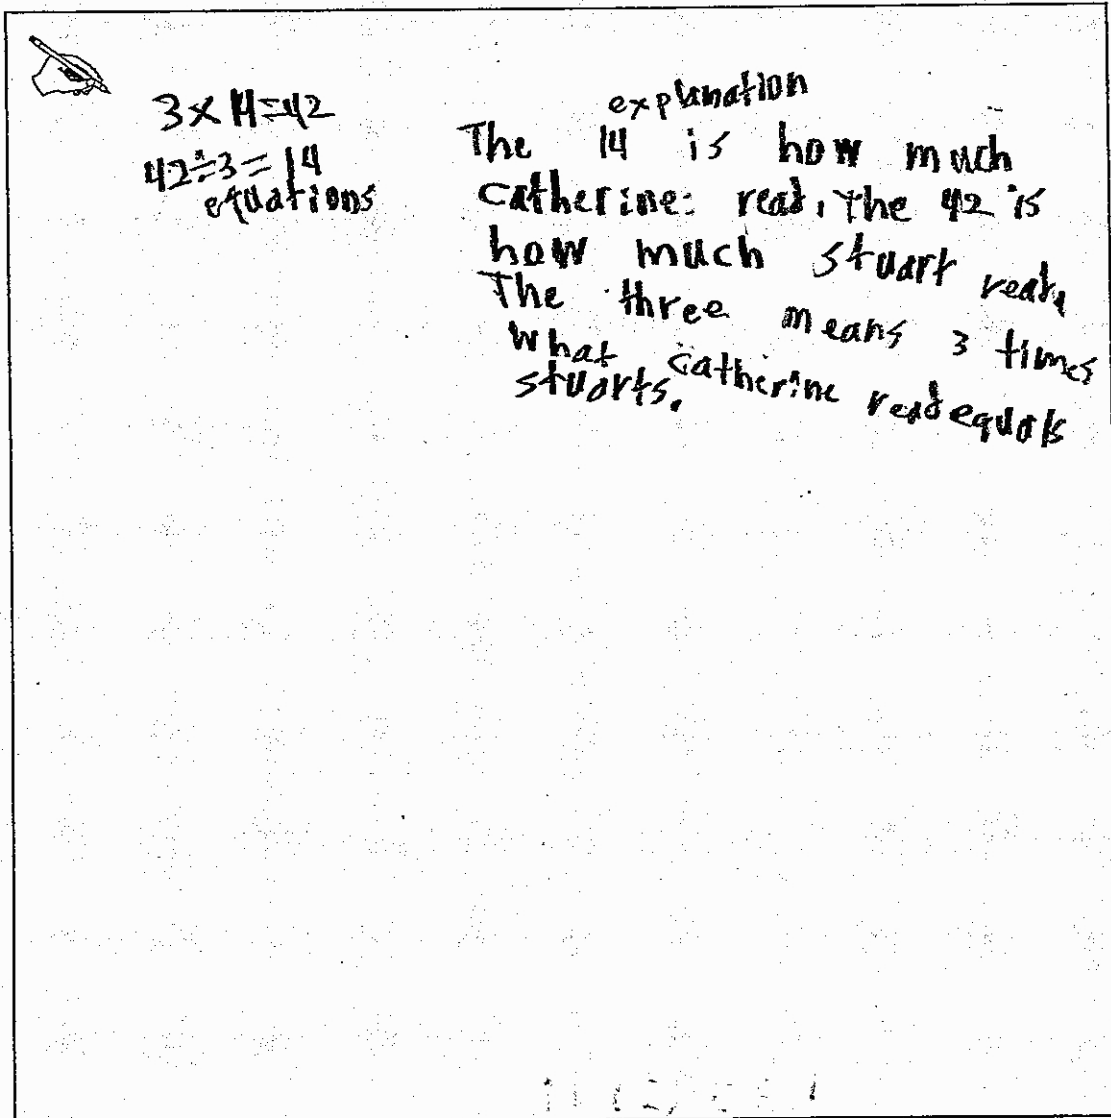 3 × 14 = 42
42 ÷ 3 = 14
equations
explanation
The 14 is how much
catherine: read, The 42 is
how much stuart read.
The three means 3 times
what catherine read equals
stuarts.